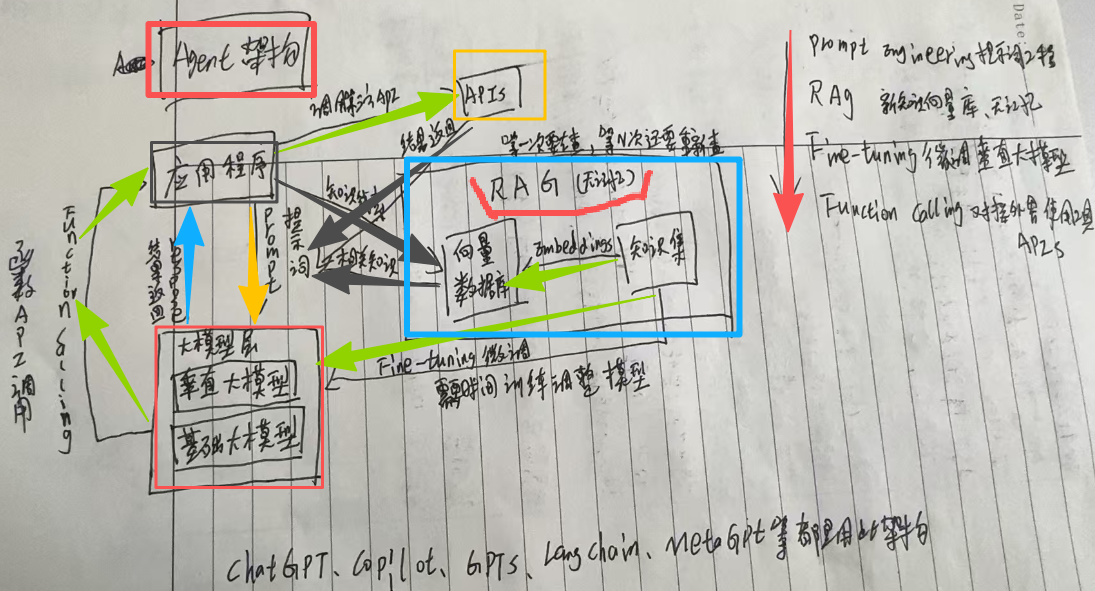 Date:
Agent 架构
APIs
调用API
结果返回
第一次要查,第N次还要重新查
应用程序
RAG (无记忆)
向量
数据库
Embeddings
知识集
相关知识
Prompt
提示词
结果返回
Function Calling
函数API调用
大模型层
垂直大模型
基础大模型
Fine-tuning 微调
需要时间训练调整模型
Prompt Engineering 提示词工程
RAG 新知识向量库、无记忆
Fine-tuning 微调垂直大模型
Function Calling 对接外界使用工具
APIs
ChatGPT、Copilot、GPTs、LangChain、MetaGpt等都是用此架构